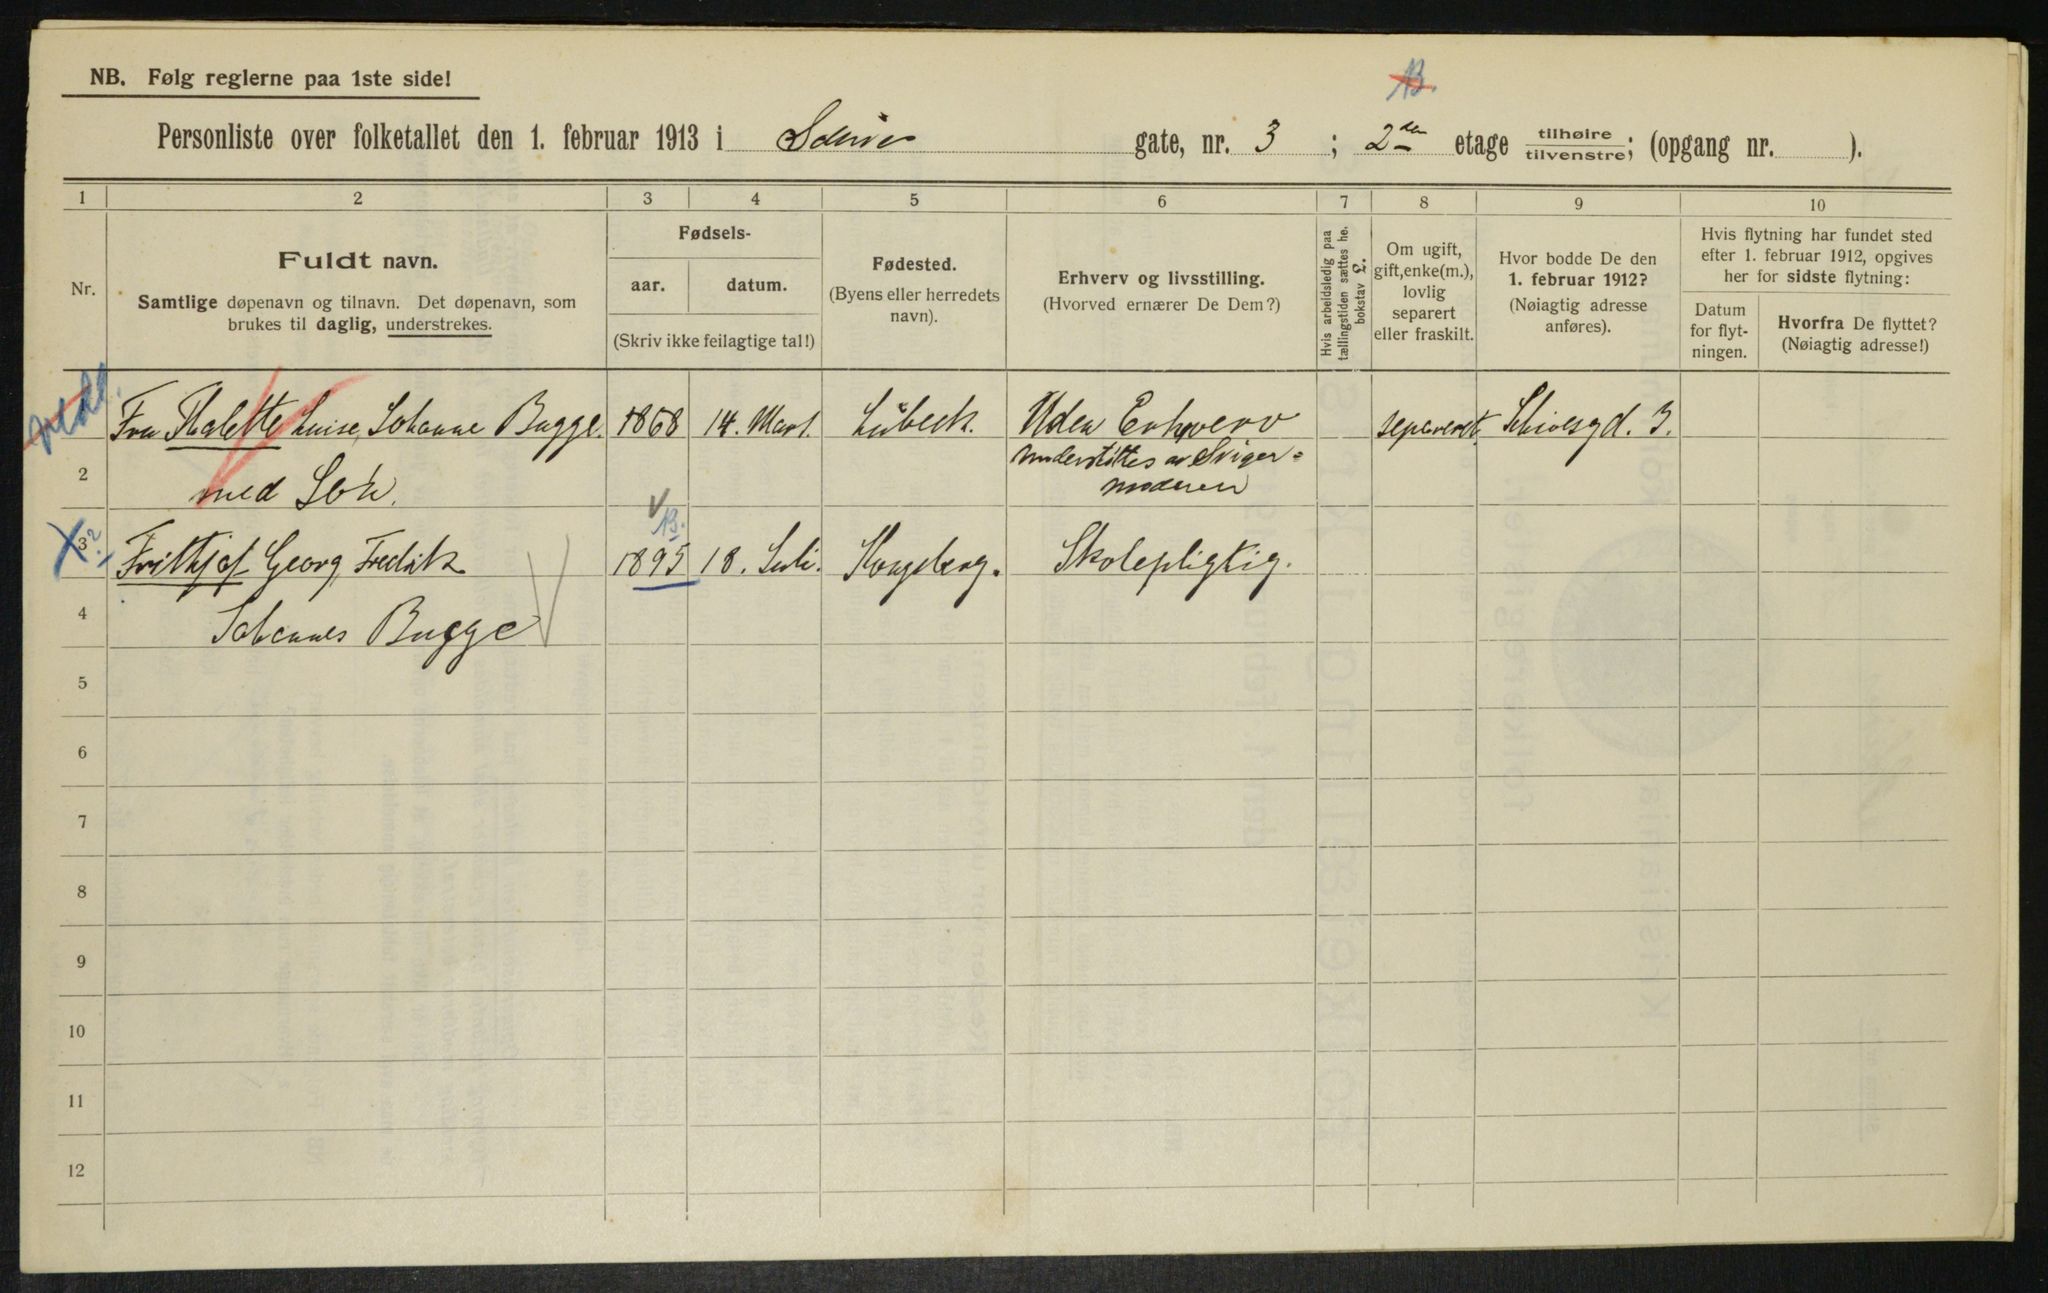 NB. Følg reglerne paa 1ste side!
B.
Personliste over folketallet den 1. februar 1913 i Schives gate, nr. 3 ; 2den etage tilhøire/tilvenstre; (opgang nr. ).
1 2 3 4 5 6 7 8 9 10
Nr.
Fuldt navn.
Samtlige døpenavn og tilnavn. Det døpenavn, som
brukes til daglig, understrekes.
Fødsels-
aar. datum.
(Skriv ikke feilagtige tal!)
Fødested.
(Byens eller herredets
navn).
Erhverv og livsstilling.
(Hvorved ernærer De Dem?)
Hvis arbeidsledig paa
tællingstiden sættes he.
bokstav L.
Om ugift,
gift, enke(m.),
lovlig
separert
eller fraskilt.
Hvor bodde De den
1. februar 1912?
(Nøiagtig adresse
anføres).
Hvis flytning har fundet sted
efter 1. februar 1912, opgives
her for sidste flytning:
Datum
for flyt-
ningen.
Hvorfra De flyttet?
(Nøiagtig adresse!)
Fru Thalette Luise, Johanne Bugge. 1868 14. Mart. Lübeck. Uden Erhverv separeret. Schivesgd. 3.
understøttes av Sviger=
2 med Søn. moderen
B.
3 2 Frithjof Georg, Fredrik 1895 18. Juli. Kongsberg. Skolepligtig.
4 Johannes Bugge
5
6
7
8
9
10
11
12